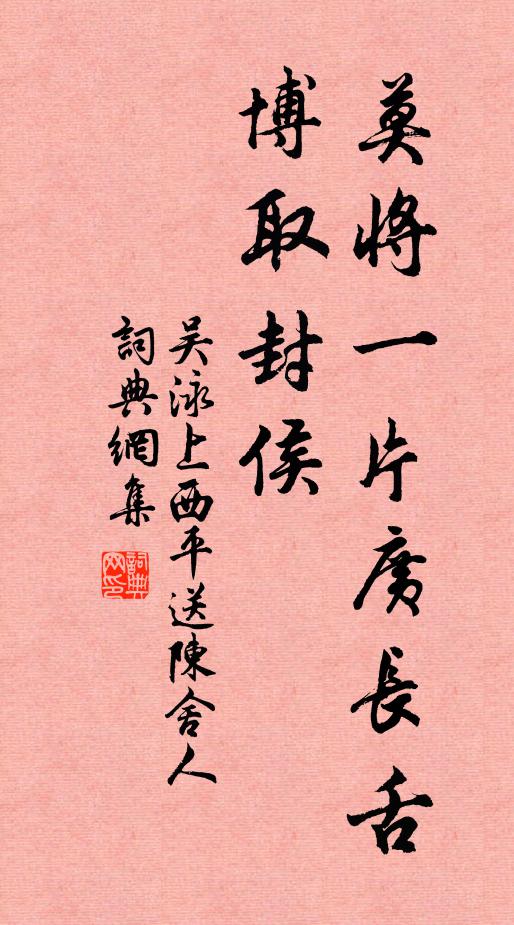 莫將一片廣長舌
博取封侯
吴泳上西平送陳舍人
詞典網集
詞典网印